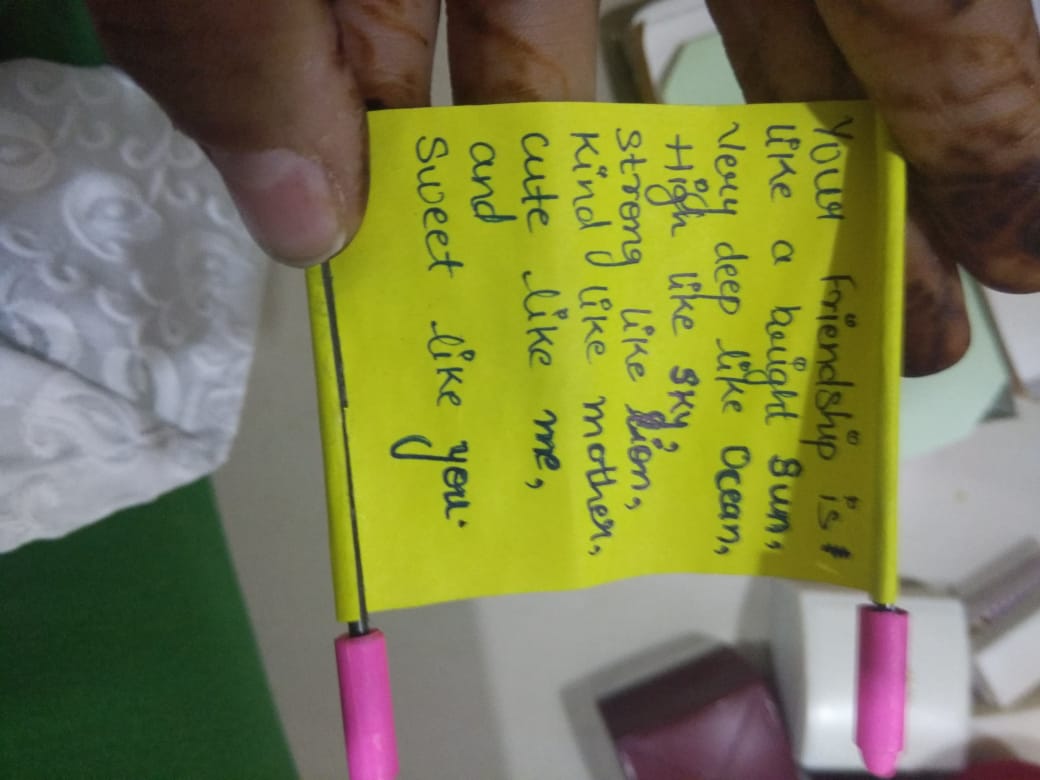 Your Friendship is
like a bright Sun,
Very deep like Ocean,
High like sky,
strong like Lion,
Kind like mother,
cute like me,
and
Sweet like you.